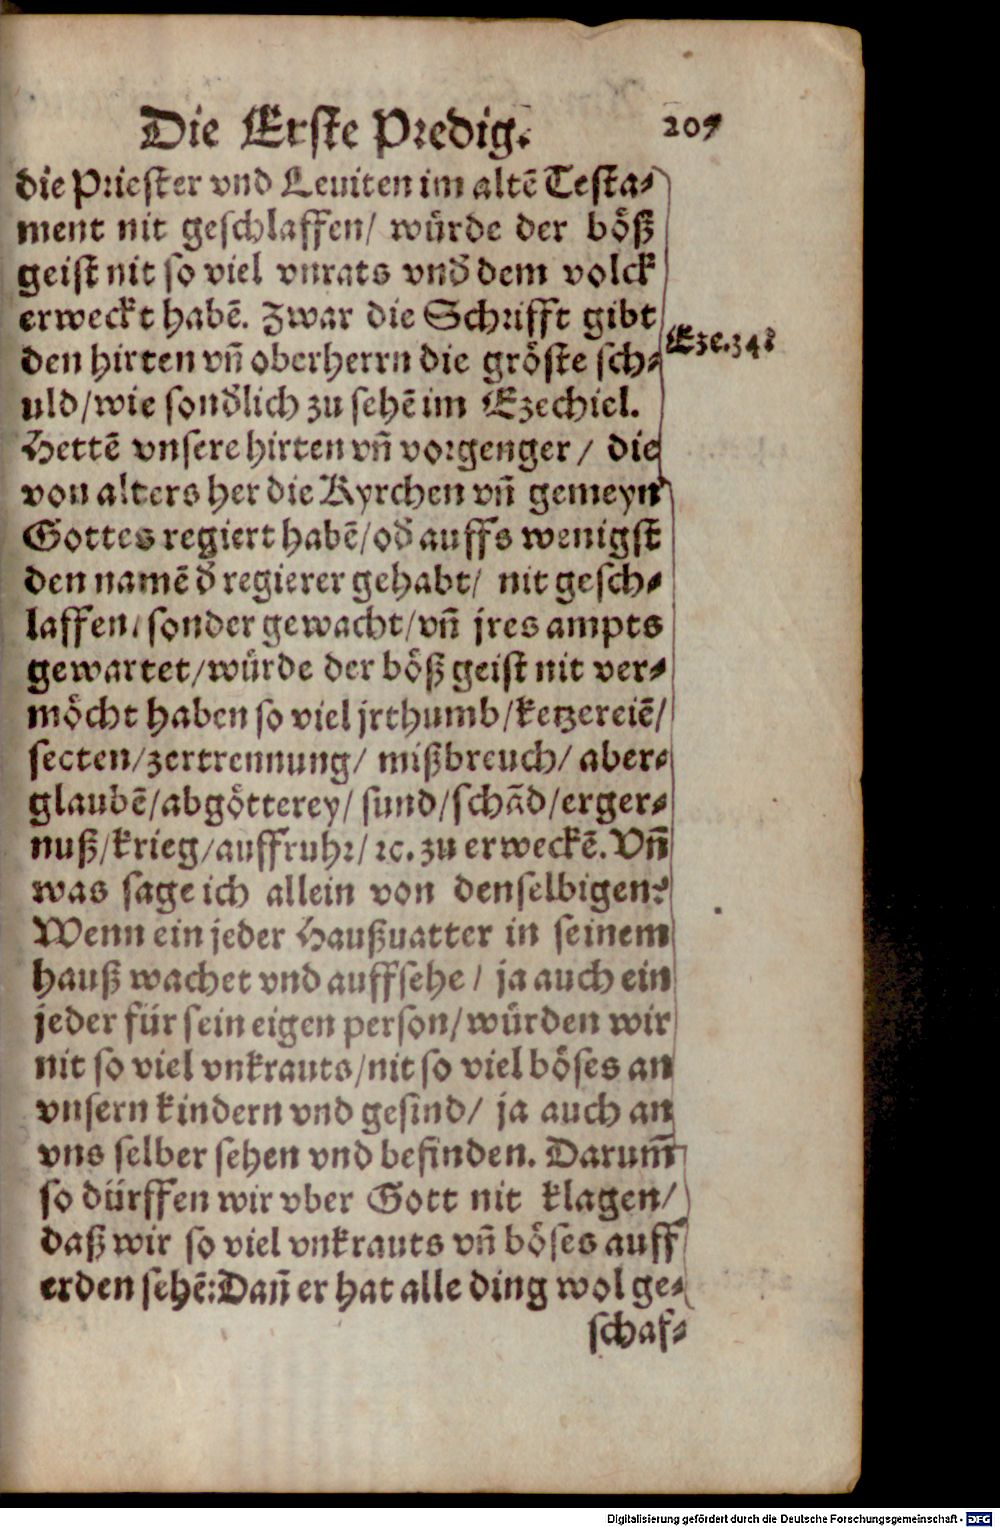 Die Erste Predig. 207
die Priester vnd Leuiten im altẽ Testa-
ment nit geschlaffen/ würde der böß
geist nit so viel vnrats vnđ dem volck
erweckt habẽ. Zwar die Schrifft gibt
Eze.34.
den hirten vñ oberherrn die gröste sch-
uld/wie sonđlich zu sehẽ im Ezechiel.
Hettẽ vnsere hirten vñ vorgenger/ die
von alters her die Kyrchen vñ gemeyn
Gottes regiert habẽ/ođ auffs wenigst
den namẽ đ regierer gehabt/ nit gesch-
laffen/ sonder gewacht/vñ jres ampts
gewartet/würde der böß geist nit ver-
möcht haben so viel jrthumb/ketzereiẽ/
secten/zertrennung/ mißbreuch/ aber-
glaubẽ/abgötterey/ sund/schãd/erger-
nuß/krieg/auffruhr/ꝛc. zu erweckẽ. Vñ
was sage ich allein von denselbigen?
Wenn ein jeder Haußuatter in seinem
hauß wachet vnd auffsehe/ ja auch ein
jeder für sein eigen person/würden wir
nit so viel vnkrauts/nit so viel böses an
vnsern kindern vnd gesind/ ja auch an
vns selber sehen vnd befinden. Darum̃
so dürffen wir vber Gott nit klagen/
daß wir so viel vnkrauts vñ böses auff
erden sehẽ: Dañ er hat alle ding wol ge-
schaf-
Digitalisierung gefördert durch die Deutsche Forschungsgemeinschaft - DFG